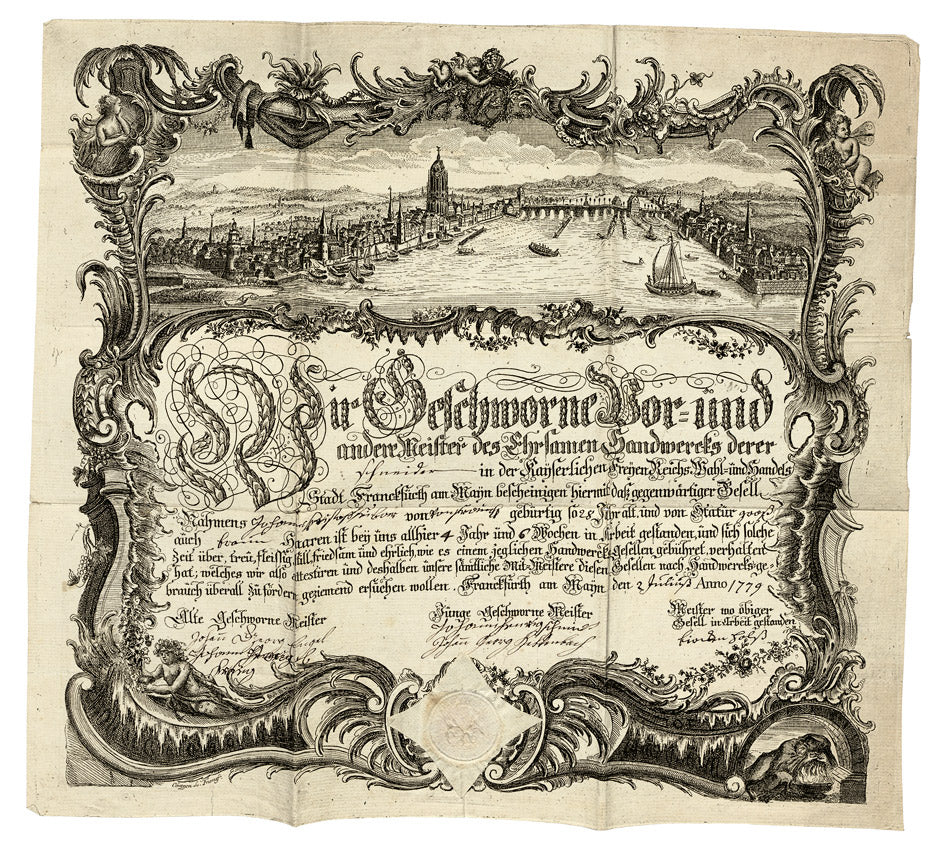 Wir Geschworne Vor= und
andere Meister des Ehrsamen Handwercks derer
Schneider in der Kaiserlichen Freyen Reichs-Wahl- und Handels
Stadt Franckfurth am Mayn bescheinigen hiermit daß gegenwärtiger Gesell
Nahmens Johann von gebürtig so 28 Jahr alt, und von Statur groß
auch braun Haaren ist bey uns allhier 4 Jahr und 6 Wochen in Arbeit gestanden, und sich solche
Zeit über, treü, fleissig still, friedsam und ehrlich, wie es einem jeglichen Handwercks-Gesellen gebühret, verhalten
hat; welches wir also attestiren und deshalben unsere sämtliche Mit-Meistere diesen Gesellen nach Handwercks-ge-
brauch überall zu fördern geziemend ersuchen wollen. Franckfurth am Mayn den 2 Julius Anno 1779
Alte Geschworne Meister
Junge Geschworne Meister
Meister wo obiger
Gesell in Arbeit gestanden
Johann Georg
Johann Georg